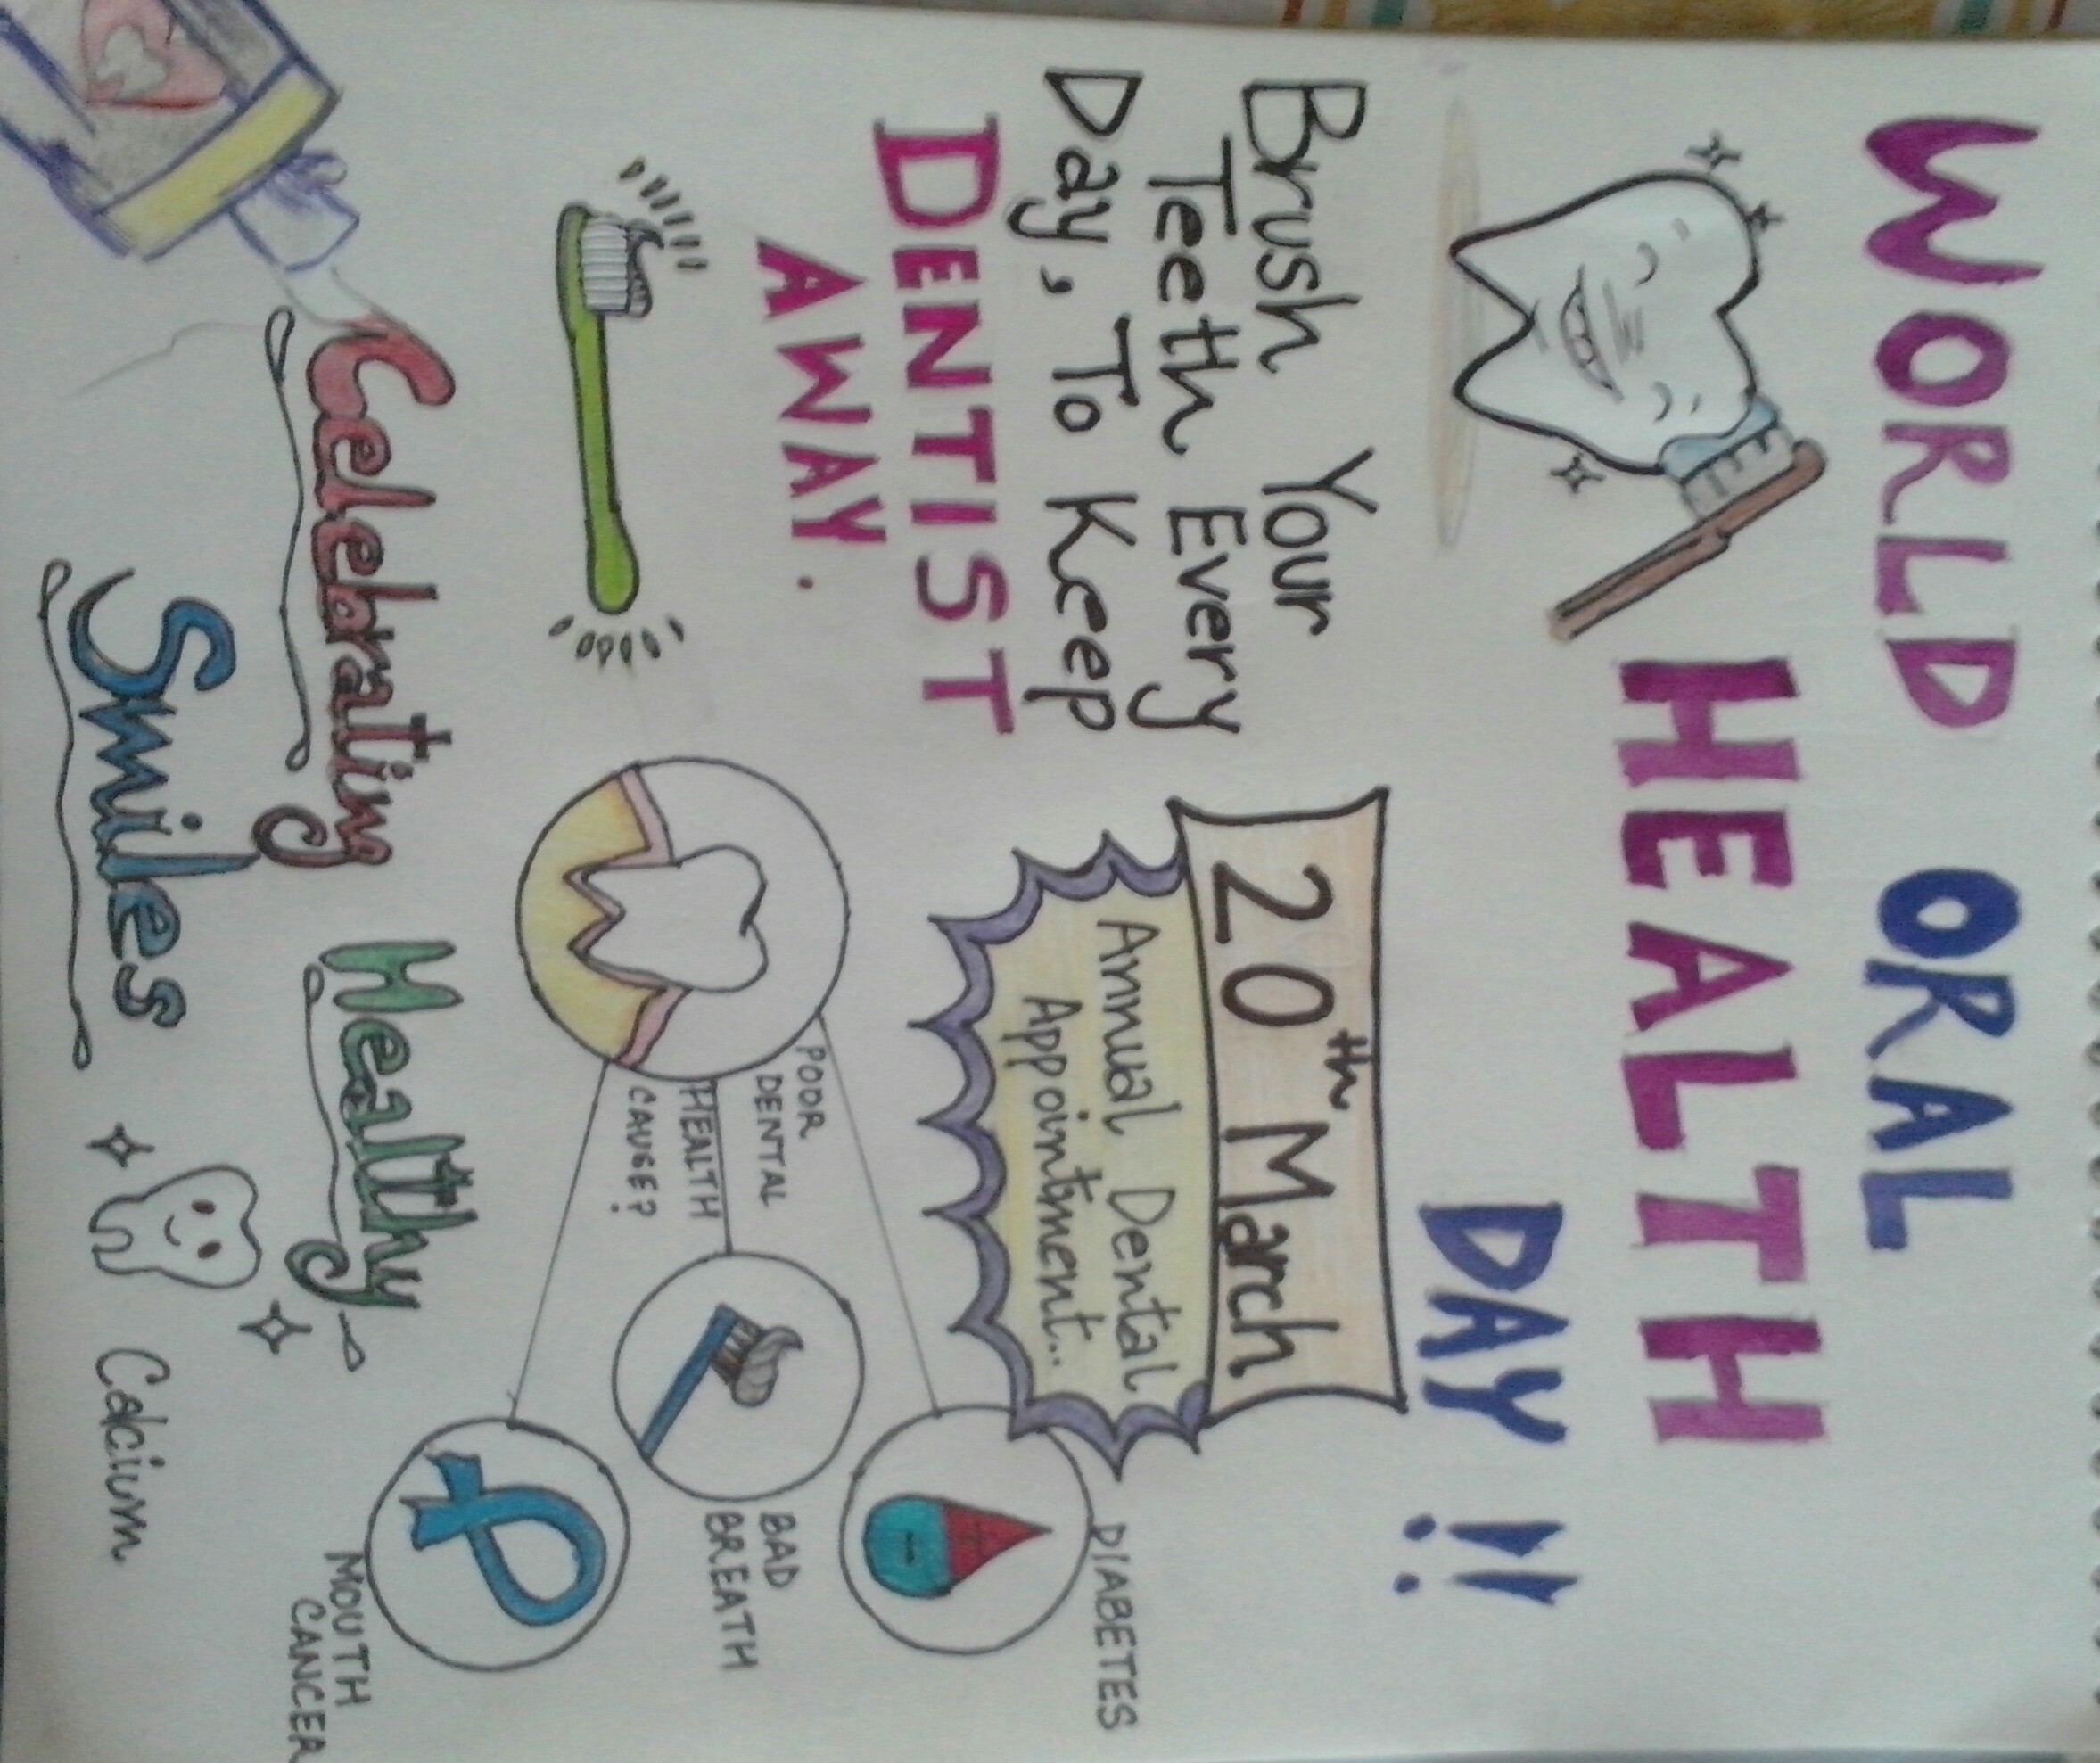 WORLD ORAL
HEALTH
DAY !!
Brush Your
Teeth Every
Day, To Keep
DENTIST
AWAY.
20th March
Annual Dental
Appointment...
POOR
DENTAL
HEALTH
CAUSE?
DIABETES
+
-
BAD
BREATH
MOUTH
CANCER
Celebrating Healthy
Smiles
Calcium